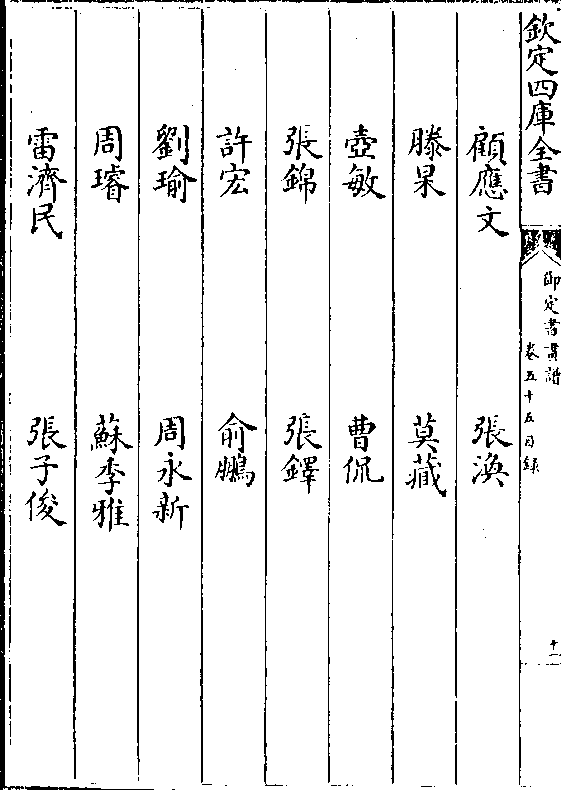 欽定四庫全書
御定書畫譜
卷五十五目錄
十一
顧應文 張渙
滕杲 莫藏
壺敏 曹侃
張錦 張鐸
許宏 俞鵬
劉瑜 周永新
周璿 蘇季雅
雷濟民 張子俊